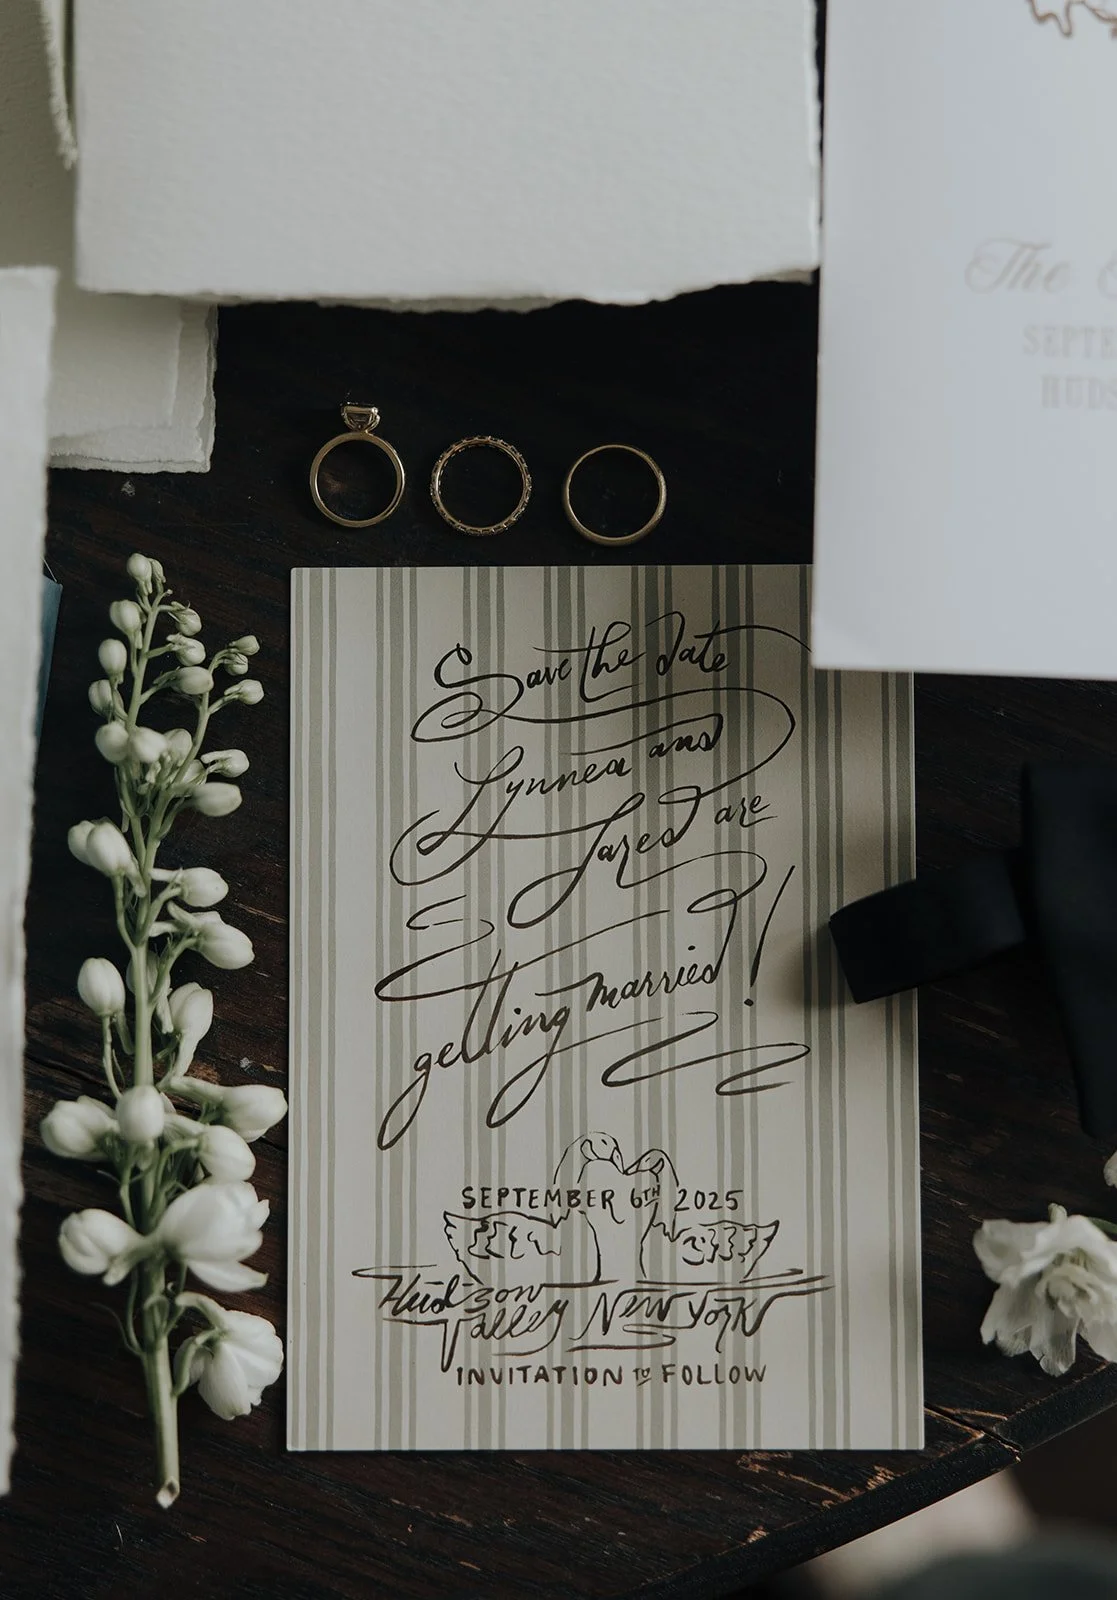 The
SEPTE
HUDS
Save the Date
Lynnea and
Jared are
getting married!
SEPTEMBER 6TH 2025
Hudson
Valley New York
INVITATION TO FOLLOW